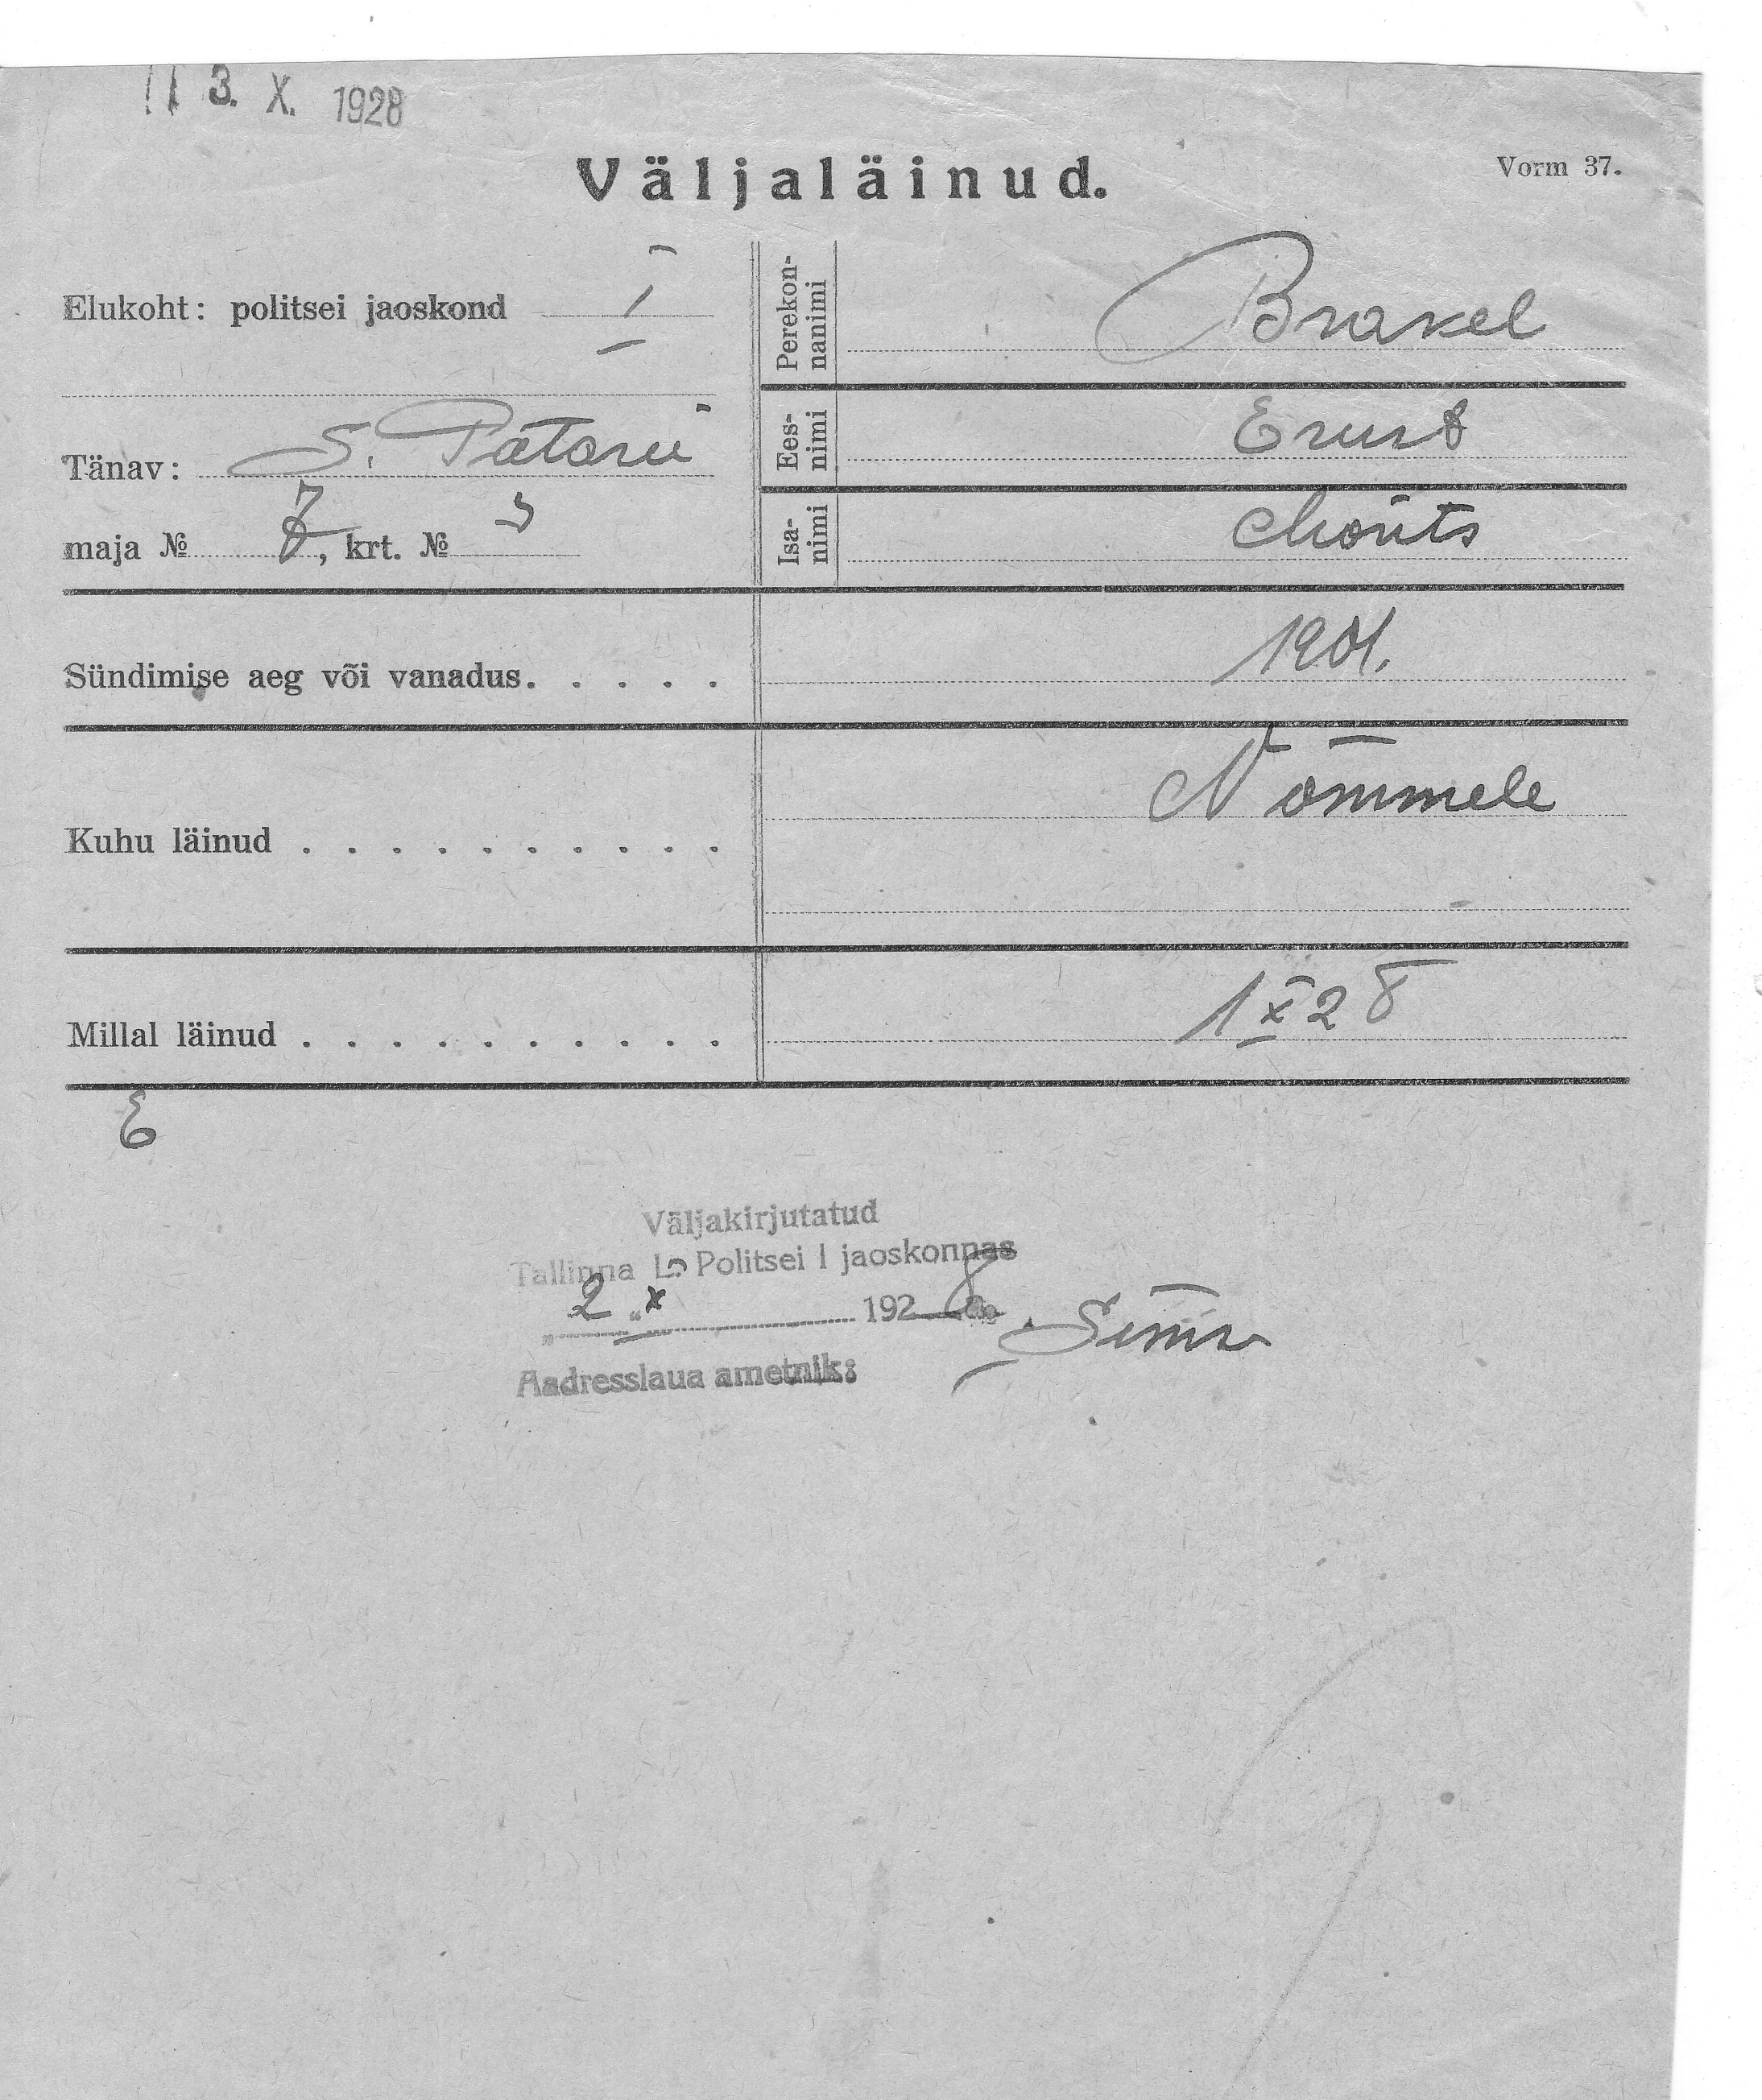 3. X. 1928
Väljaläinud.
Vorm 37.
Elukoht: politsei jaoskond I
Tänav: S. Patarei
maja № 7, krt. №
Perekon-
nanimi
Brakel
Ees-
nimi
Ernst
Isa-
nimi
Morits
Sündimise aeg või vanadus. . . . . 1901.
Kuhu läinud . . . . . . . . . . Nõmmele
Millal läinud . . . . . . . . . . 1 X 28
E
Väljakirjutatud
Tallinna L. Politsei I jaoskonnas
„ 2 “ X 1928 a.
Aadresslaua ametnik: